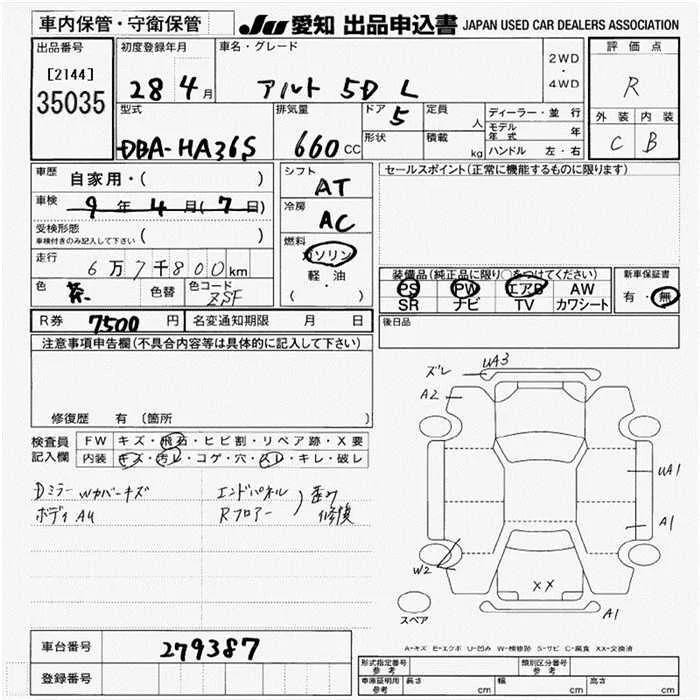 車内保管・守衛保管 JU 愛知 出品申込書 JAPAN USED CAR DEALERS ASSOCIATION
出品番号 初度登録年月 車名・グレード 2WD・4WD 評価点
[2144]
35035 28 4月 アルト 5D L R
型式 排気量 ドア 5 定員 人 ディーラー・並行 外装 内装
DBA-HA36S 660 CC 形状 積載 kg モデル年式 年 C B
ハンドル 左・右
車歴 自家用・( ) シフト AT セールスポイント(正常に機能するものに限ります)
車検 9年4月(7日) 冷房 AC
受検形態 車検付きのみ記入して下さい ( )
燃料 ガソリン
軽・油
( )
走行 6万7千800km
装備品(純正品に限り○をつけてください) 新車保証書
色 茶 色替 色コード ZSF PS PW エアB AW 有・無
SR ナビ TV カワシート
R券 7500円 名変通知期限 月 日 後日品
注意事項申告欄(不具合内容等は具体的に記入して下さい)
修復歴 有 〔箇所 〕
検査員記入欄 FW キズ・飛石・ヒビ割・リペア跡・X要
内装 キズ・汚レ・コゲ・穴・スレ・キレ・破レ
Dミラー Wカバーキズ エンドパネル
ボディ A4 Rフロアー 修復
ズレ UA3
A2
UA1
A1
W2
XX
A1
スペア
A-キズ E-エクボ U-凹み W-補修跡 S-サビ C-腐食 XX-交換済
車台番号 279387
登録番号
形式指定番号 参考 類別区分番号 参考
車庫証明用 参考 長さ cm 幅 cm 高さ cm